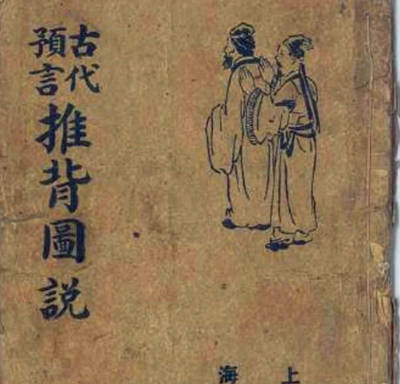 古代
預言
推背圖説
上
海